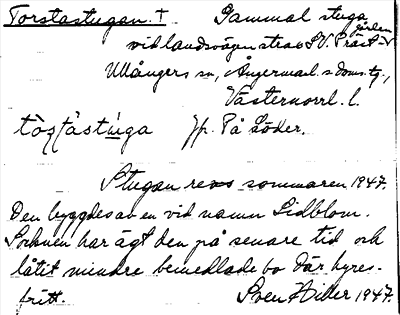 Torstastugan. † Gammal stuga
vid landsvägen strax S.V. Präst-
gården
Ullångers sn, Ångermanl. s doms. tg.,
Västernorrl. l.
tòs̩ſàstu̇ga Jfr. På Söder.
Stugan revs sommaren 1947.
Den byggdes av en vid namn Lidblom.
Socknen har ägt den på senare tid och
låtit mindre bemedlade bo där hyres-
fritt. Sven Hiller 1947.